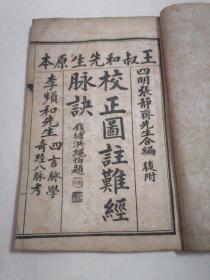 王叔和先生原本
四明張靜齋先生合編 後附
校正圖註難經
脉訣
錢塘洪繩伯題
李頻和先生 四言脉學
奇經八脉考